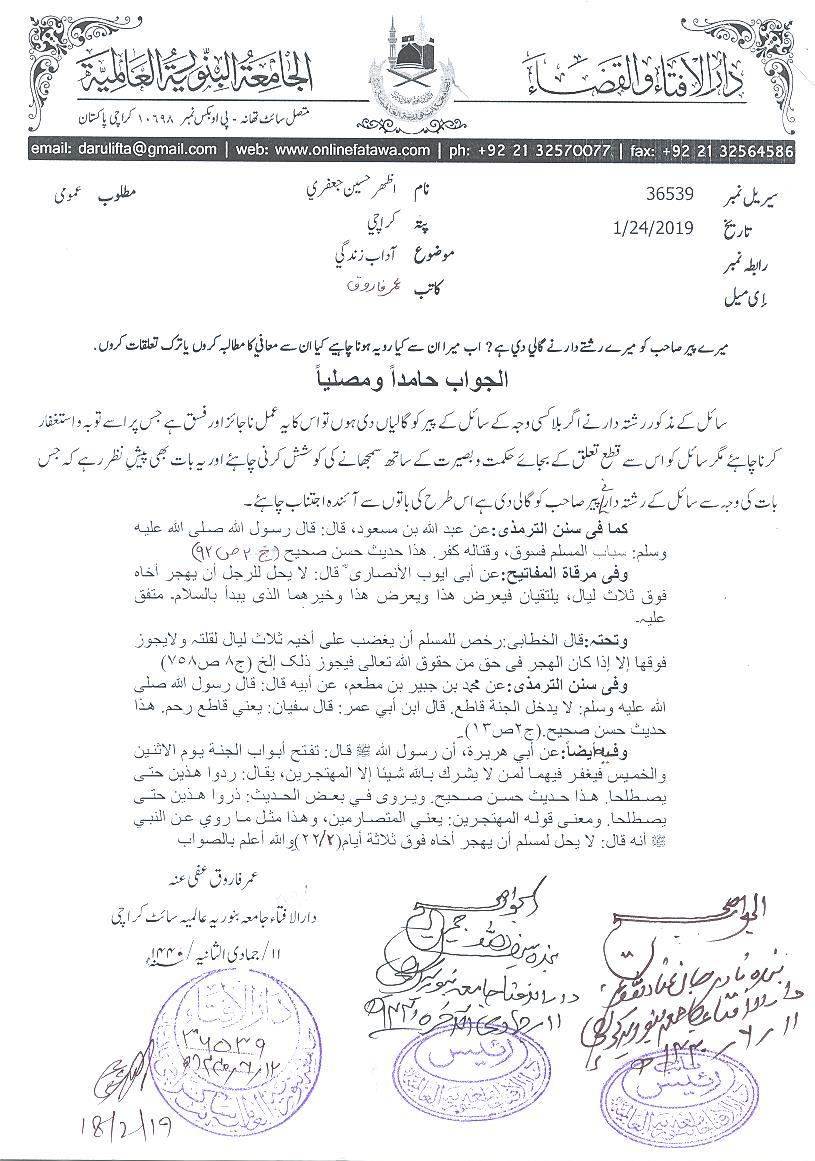 دار الافتاء والقضاء
الجامعة البنورية العالمية
متصل سائٹ تھانہ - پی او بکس نمبر ۱۰۶۹۸ کراچی پاکستان
email: darulifta@gmail.com | web: www.onlinefatawa.com | ph: +92 21 32570077 | fax: +92 21 32564586
سیریل نمبر 36539 نام اظہر حسین جعفری مطلوب عمومی
تاریخ 1/24/2019 پتہ کراچی
رابطہ نمبر موضوع آداب زندگی
إی میل کاتب عمر فاروق
میرے پیر صاحب کو میرے رشتے دار نے گالی دی ہے؟ اب میرا ان سے کیا رویہ ہونا چاہیے کیا ان سے معافی کا مطالبہ کروں یا ترک تعلقات کروں.
الجواب حامداً ومصلیاً
سائل کے مذکور رشتہ دار نے اگر بلا کسی وجہ کے سائل کے پیر کو گالیاں دی ہوں تو اس کا یہ عمل ناجائز اور فسق ہے جس پر اسے توبہ واستغفار
کرنا چاہئے مگر سائل کو اس سے قطع تعلق کے بجائے حکمت وبصیرت کے ساتھ سمجھانے کی کوشش کرنی چاہئے اور یہ بات بھی پیشِ نظر رہے کہ جس
بات کی وجہ سے سائل کے رشتہ دار نے پیر صاحب کو گالی دی ہے اس طرح کی باتوں سے آئندہ اجتناب چاہئے۔
کما فی سنن الترمذی: عن عبد اللہ بن مسعود، قال: قال رسول اللہ صلی اللہ علیہ
وسلم: سباب المسلم فسوق، وقتالہ کفر. ھذا حدیث حسن صحیح (ج ۲ ص ۹۲)
وفی مرقاۃ المفاتیح: عن أبی ایوب الأنصاری قال: لا یحل للرجل أن یھجر أخاہ
فوق ثلاث لیال، یلتقیان فیعرض ھذا ویعرض ھذا وخیرھما الذی یبدأ بالسلام. متفق
علیہ۔
وتحتہ: قال الخطابی: رخص للمسلم أن یغضب علی أخیہ ثلاث لیال لقلتہ ولایجوز
فوقھا إلا إذا کان الھجر فی حق من حقوق اللہ تعالی فیجوز ذلک إلخ (ج۸ ص۷۵۸)
وفی سنن الترمذی: عن محمد بن جبیر بن مطعم، عن أبیہ قال: قال رسول اللہ صلی
اللہ علیہ وسلم: لا یدخل الجنة قاطع. قال ابن أبی عمر: قال سفیان: یعنی قاطع رحم. ھذا
حدیث حسن صحیح.(ج۲ص۱۳)۔
وفیہ أیضاً: عن أبي هريرة، أن رسول الله ﷺ قال: تفتح أبواب الجنة يوم الاثنين
والخميس فيغفر فيهما لمن لا يشرك بالله شيئا إلا المهتجرين، يقال: ردوا هذين حتى
يصطلحا. هذا حديث حسن صحيح. ويروى في بعض الحديث: ذروا هذين حتى
يصطلحا. ومعنى قوله المهتجرين: يعني المتصارمين، وهذا مثل ما روي عن النبي
ﷺ أنه قال: لا يحل لمسلم أن يهجر أخاه فوق ثلاثة أيام(۲۲/۲)والله أعلم بالصواب
عمر فاروق عفی عنہ
دارالافتاء جامعہ بنوریہ عالمیہ سائٹ کراچی
۱۱/ جمادی الثانیہ/ ۱۴۴۰ھ
الجواب صحیح
الجواب صحیح
دار الافتاء
۳۶۵۳۹
رئیس
رئیس
18/2/19